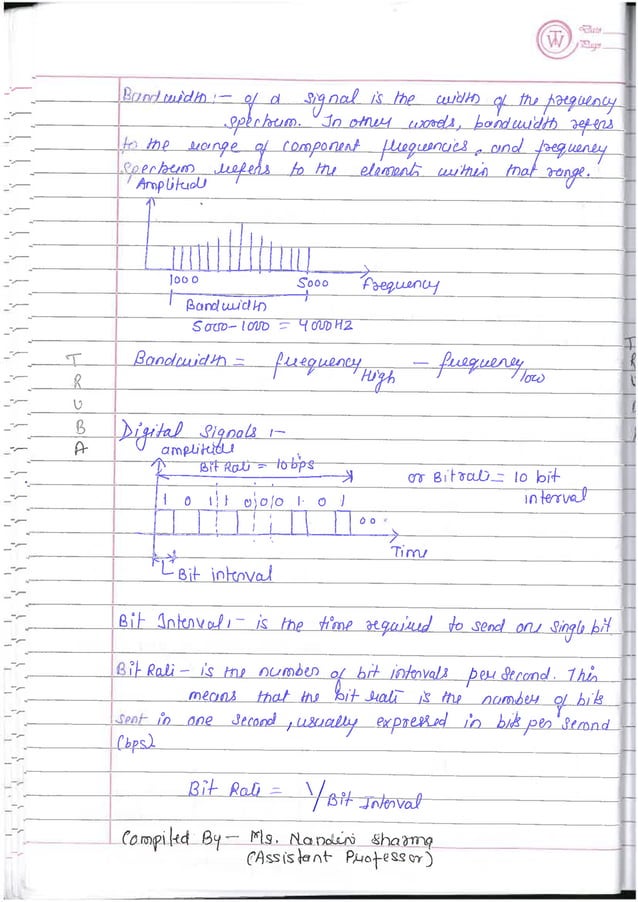 Date
Page
Bandwidth :- of a signal is the width of the frequency
spectrum. In other words, bandwidth refers
to the range of component frequencies, and frequency
spectrum refers to the elements within that range.
Amplitude
1000 5000 Frequency
Bandwidth
5000-1000 = 4000HZ
Bandwidth = frequency High - frequency low
TRUBA
Digital Signals :-
amplitude
Bit Rate = 10bps
or Bitrate = 10 bit
interval
1 0 1 1 0 0 0 1 0 1
Time
Bit interval
Bit Interval :- is the time required to send one single bit
Bit Rate - is the number of bit intervals per second. This
means that the bit rate is the number of bits
sent in one second, usually expressed in bits per second
(bps)
Bit Rate = 1/Bit Interval
Compiled By - Ms. Nandini Sharma
(Assistant Professor)